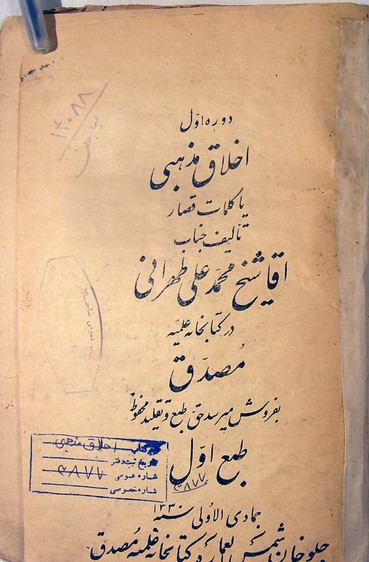 دوره اول
اخلاق مذهبی
یا کلمات قصار
تالیف جناب
اقا شیخ محمد علی طهرانی
در کتابخانه علمیه
مصدق
بفروش میرسد حق طبع و تقلید محفوظ
طبع اول
۳۸۷۷
جمادی الاولی سنه ۱۳۳۰
جلوخان شمس العماره کتابخانه علمیه مصدق
۱۴۰۸۸
کتاب اخلاق مذهبی
تاریخ ثبت دفتر
شماره عمومی ۳۸۷۷
شماره خصوصی